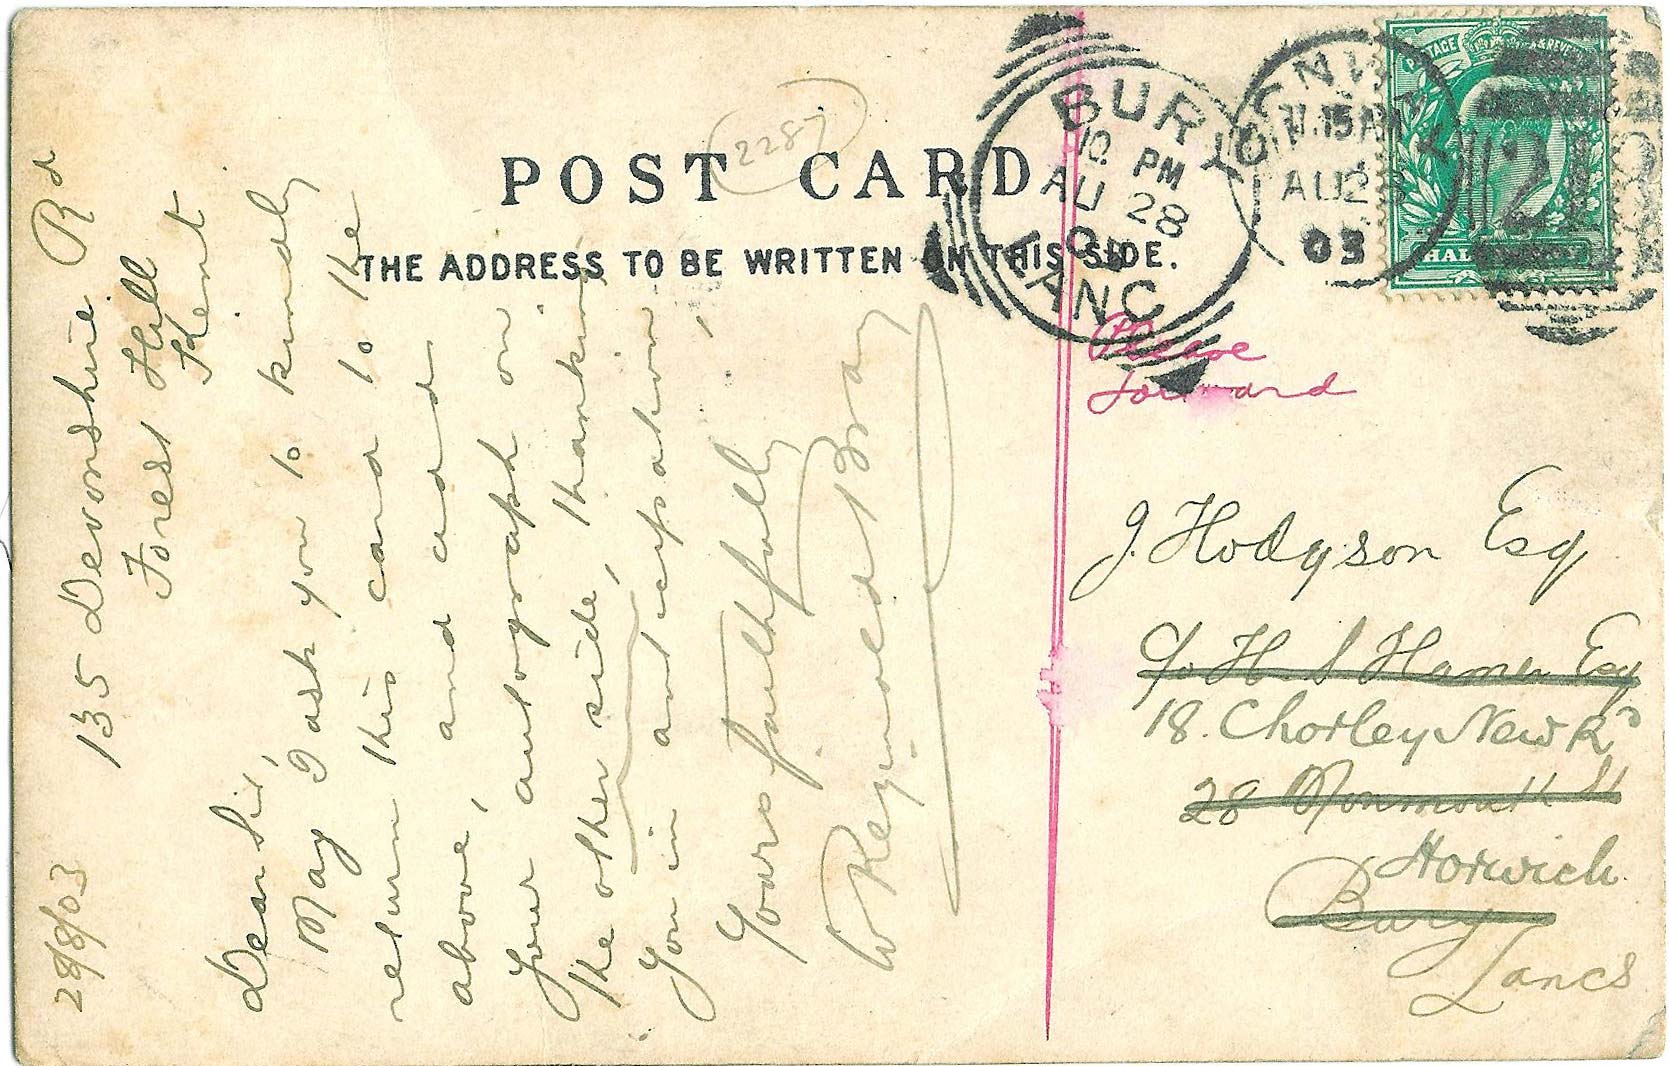 POST CARD
2287
THE ADDRESS TO BE WRITTEN ON THIS SIDE.
BURY
10 PM
AU 28
03
LANC
11.15 AM
AU 28
03
21
POSTAGE & REVENUE
HAL
135 Devonshire Rd
Forest Hill
Kent
28/8/03
Dear Sir,
May I ask you to kindly
return this card to the
above, and add
your autograph on
the other side, thanking
you in anticipation,
Yours faithfully
W Reginald Bray
Please
forward
J. Hodgson Esq
c/o H. S Hamer Esq
18. Chorley New Rd
28 Monmouth St
Horwich
Bury
Lancs